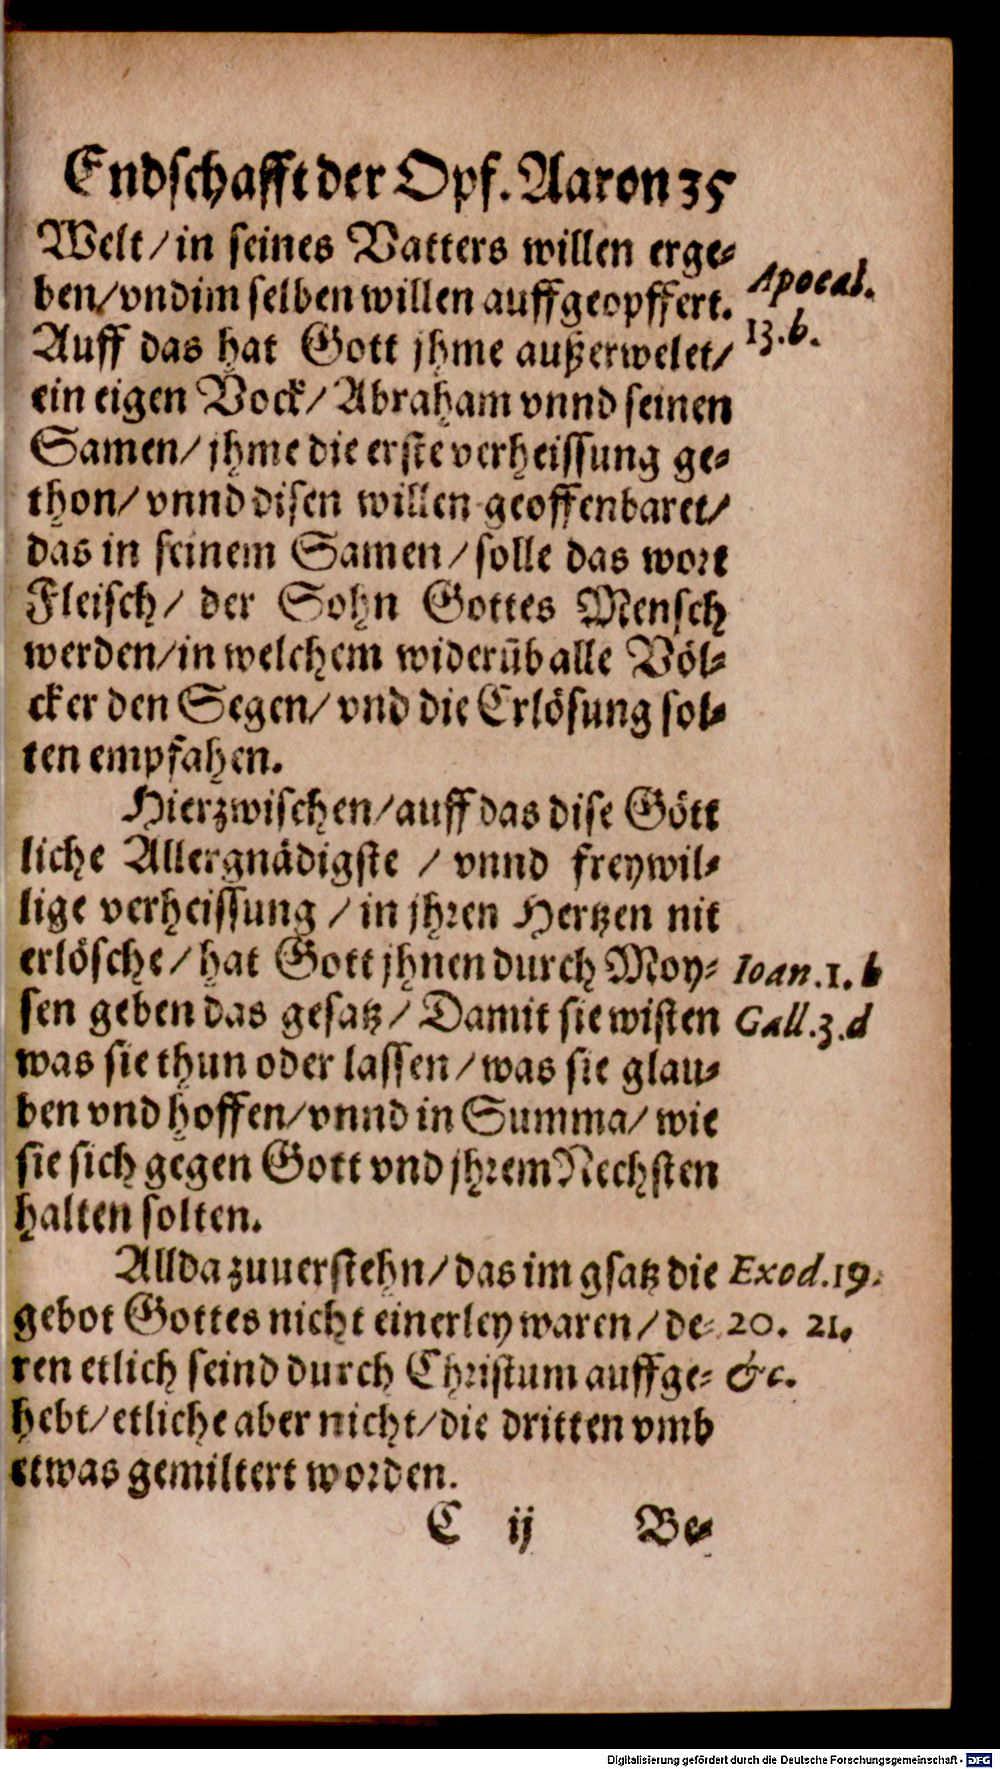 Endschafft der Opf. Aaron 35
Welt/ in seines Vatters willen erge-
ben/ vnd im selben willen auffgeopffert.
Apocal.
13.b.
Auff das hat Gott jhme außerwelet/
ein eigen Vock/ Abraham vnnd seinen
Samen/ jhme die erste verheissung ge-
thon/ vnnd disen willen geoffenbaret/
das in seinem Samen/ solle das wort
Fleisch/ der Sohn Gottes Mensch
werden/ in welchem widerüb alle Völ-
cker den Segen/ vnd die Erlösung sol-
ten empfahen.
Hierzwischen/ auff das dise Gött
liche Allergnädigste / vnnd freywil-
lige verheissung / in jhren Hertzen nit
erlösche/ hat Gott jhnen durch Moy-
Ioan.1.b
sen geben das gesatz/ Damit sie wisten
Gall.3.d
was sie thun oder lassen/ was sie glau-
ben vnd hoffen/ vnnd in Summa/ wie
sie sich gegen Gott vnd jhrem Nechsten
halten solten.
Allda zuuerstehn/ das im gsatz die
Exod.19.
gebot Gottes nicht einerley waren/ de-
20. 21.
ren etlich seind durch Christum auffge-
&c.
hebt/ etliche aber nicht/ die dritten vmb
etwas gemiltert worden.
C ij Be-
Digitalisierung gefördert durch die Deutsche Forschungsgemeinschaft - DFG